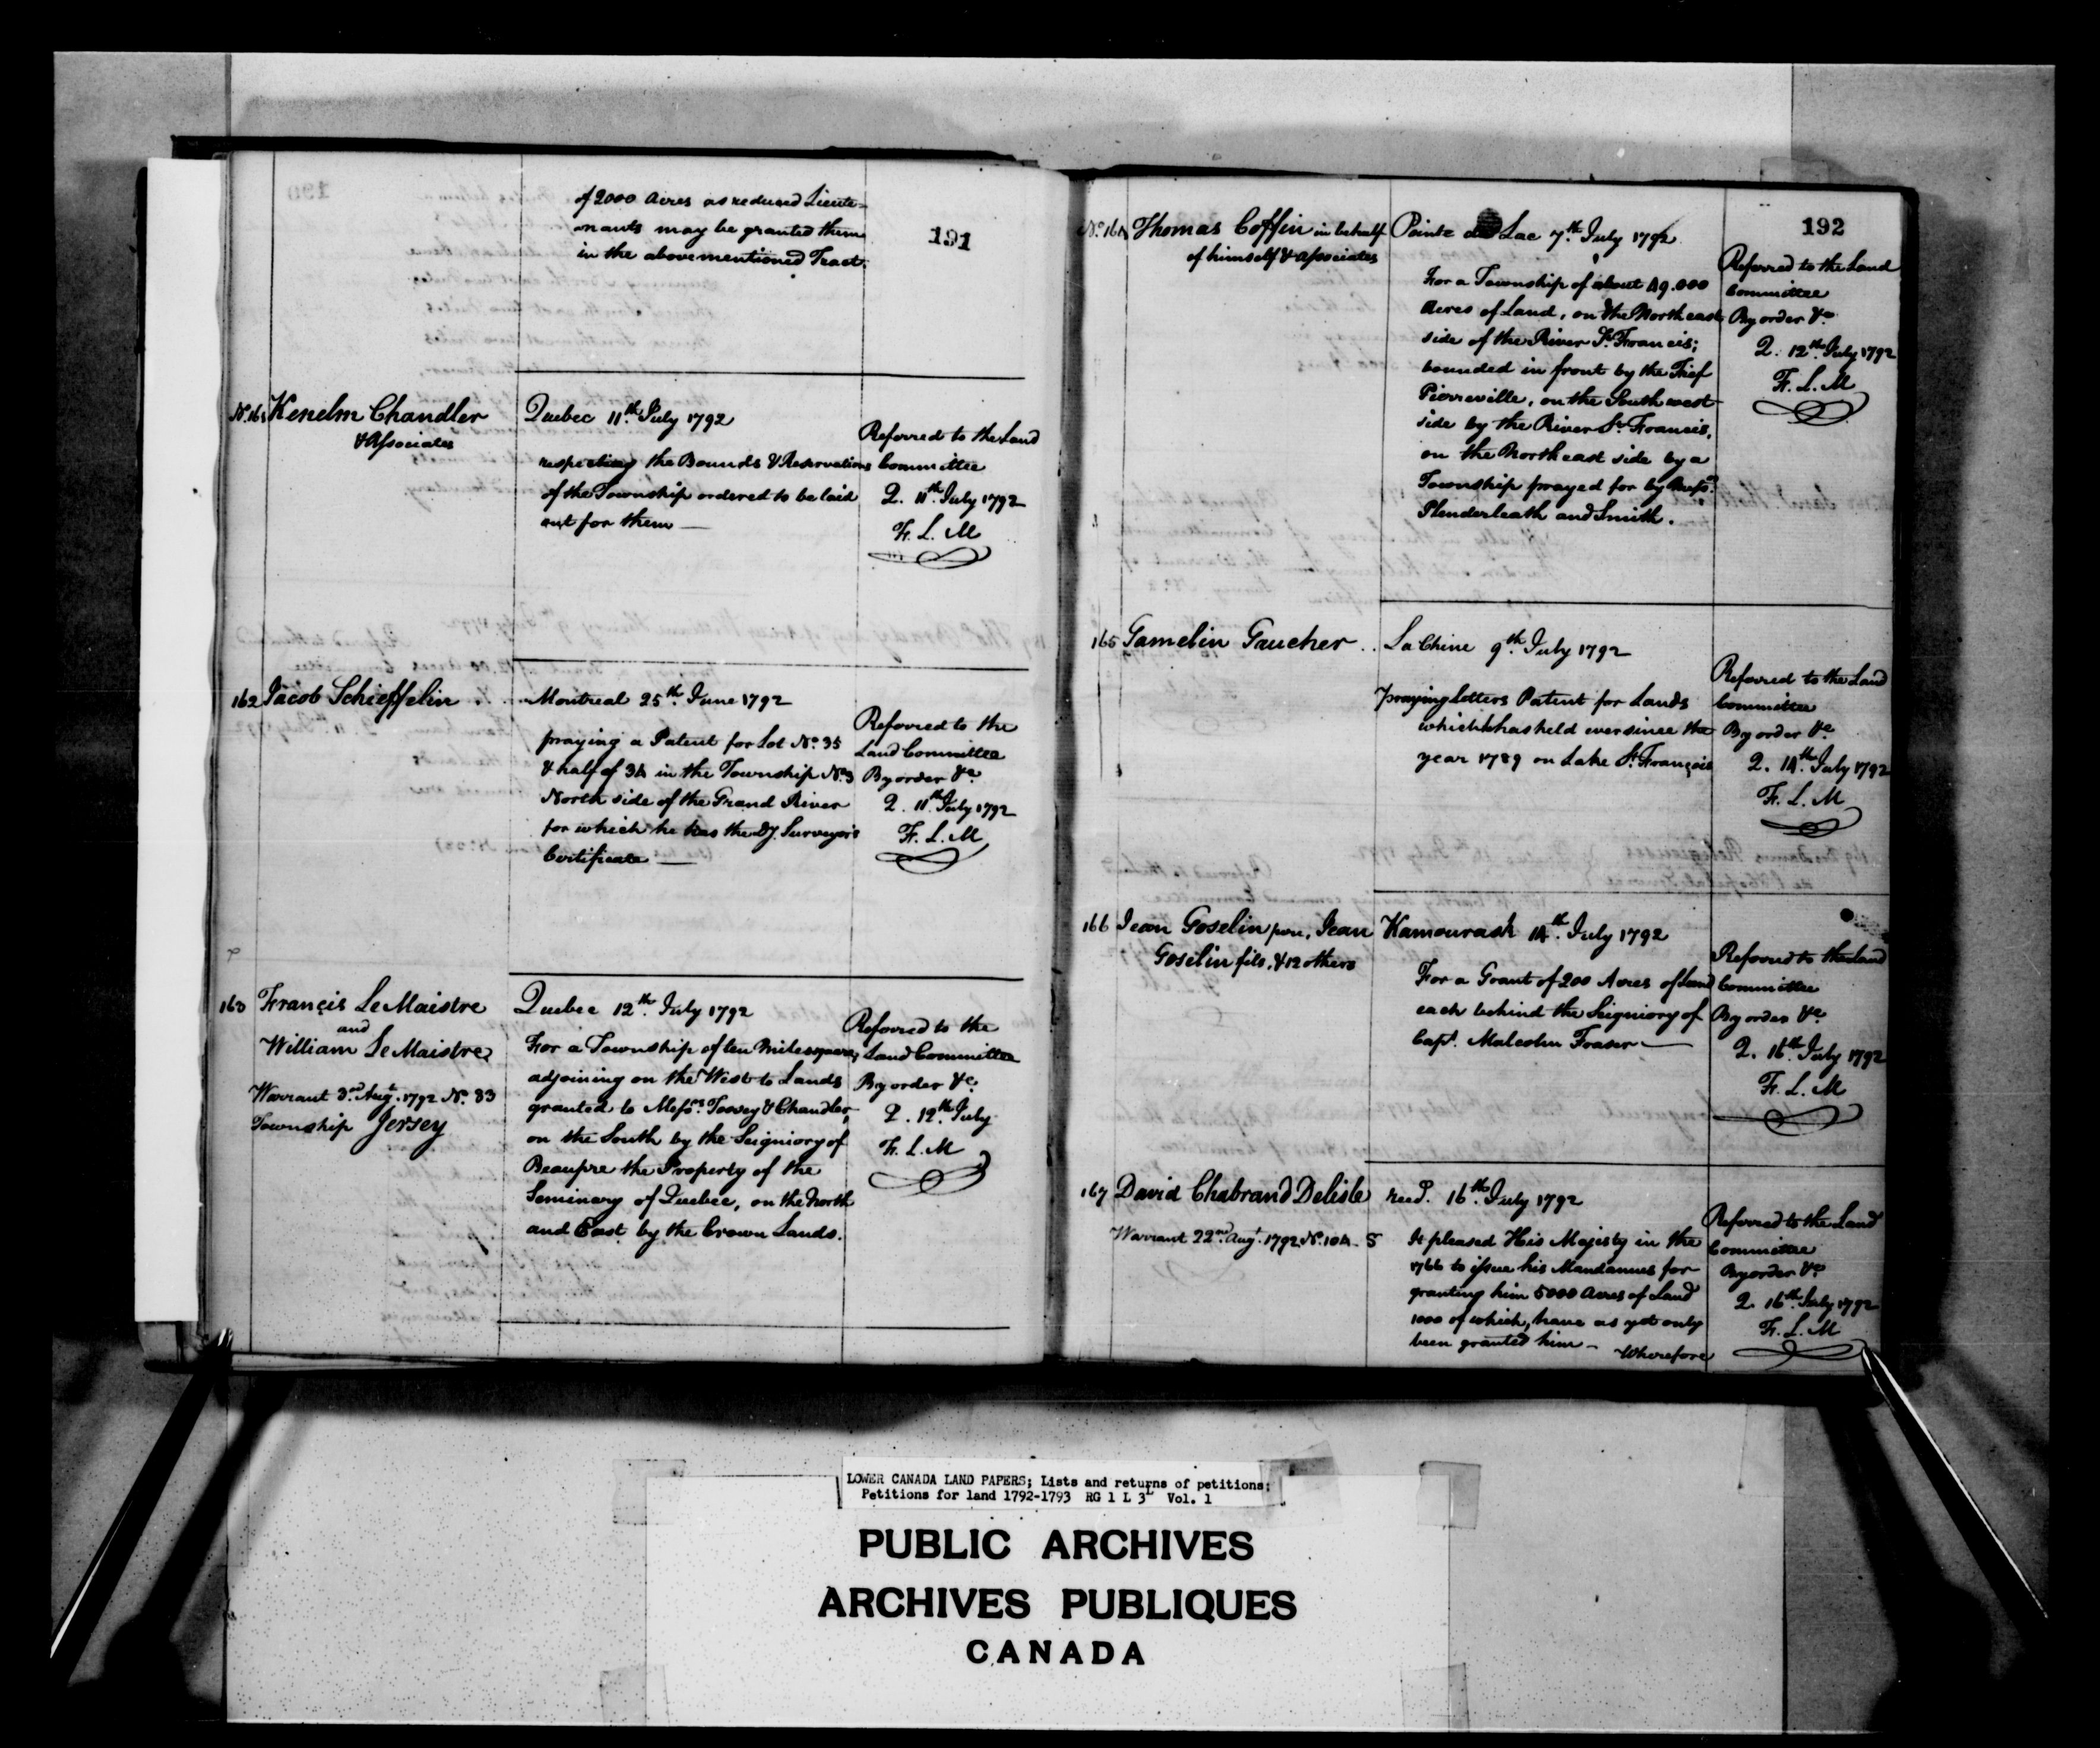 191
of 2000 Acres as reduced Lieute=
nants may be granted them
in the abovementioned Tract.
No. 161 Kenelm Chandler
& Associates
Quebec 11th July 1792
respecting the Bounds & Reservations
of the Township ordered to be laid
out for them —
Referred to the Land
Committee
Q. 11th July 1792
F. L. M
162 Jacob Schieffelin . .
Montreal 25th June 1792
praying a Patent for Lot No. 35
& half of 34 in the Township No. 3
North side of the Grand River
for which he has the Dy. Surveyor's
Certificate —
Referred to the
Land Committee
By order &c
Q. 11th July 1792
F. L. M
163 Francis Le Maistre
and
William Le Maistre
Warrant 3rd Augt. 1792 No. 83
Township Jersey
Quebec 12th July 1792
For a Township of ten Miles square,
adjoining on the West to Lands
granted to Messrs. Toosey & Chandler,
on the South by the Seigniory of
Beaupre the Property of the
Seminary of Quebec, on the North
and East by the Crown Lands.
Referred to the
Land Committee
By order &c.
Q. 12th July
F. L. M
192
No. 164 Thomas Coffin in behalf
of himself & Associates
Pointe du Lac 7th July 1792
For a Township of about 49.000
Acres of Land, on the North east
side of the River St. Francis;
bounded in front by the Fief
Pierreville, on the South west
side by the River St. Francis,
on the North east side by a
Township prayed for by Messrs.
Plenderleath and Smith.
Referred to the Land
Committee
By order &c
Q. 12th July 1792
F. L. M
165 Gamelin Gaucher . .
La Chine 9th July 1792
praying Letters Patent for Lands
which he has held ever since the
year 1789 on Lake St. François
Referred to the Land
Committee
By order &c
Q. 14th July 1792
F. L. M
166 Jean Goselin pere, Jean
Goselin fils, & 12 others
Kamourask 14th July 1792
For a Grant of 200 Acres of Land
each behind the Seigniory of
Capt. Malcolm Fraser —
Referred to the Land
Committee
By order &c.
Q. 16th July 1792
F. L. M
167 David Chabrand Delisle
Warrant 22nd Augt. 1792 No. 104. S
recd. 16th July 1792
It pleased His Majesty in the
1766 to issue his Mandamus for
granting him 5000 Acres of Land
1000 of which, have as yet only
been granted him —
Wherefore
Referred to the Land
Committee
By order &c
Q. 16th July 1792
F. L. M
LOWER CANADA LAND PAPERS; Lists and returns of petitions:
Petitions for land 1792-1793 RG 1 L 3L Vol. 1
PUBLIC ARCHIVES
ARCHIVES PUBLIQUES
CANADA